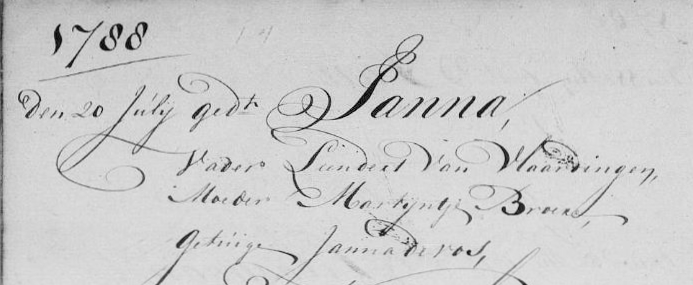 1788
den 20 Julÿ gedt Janna,
Vader Leendert van Vlaardingen,
Moeder Martyntje Broek,
Getuige Janna de vos,